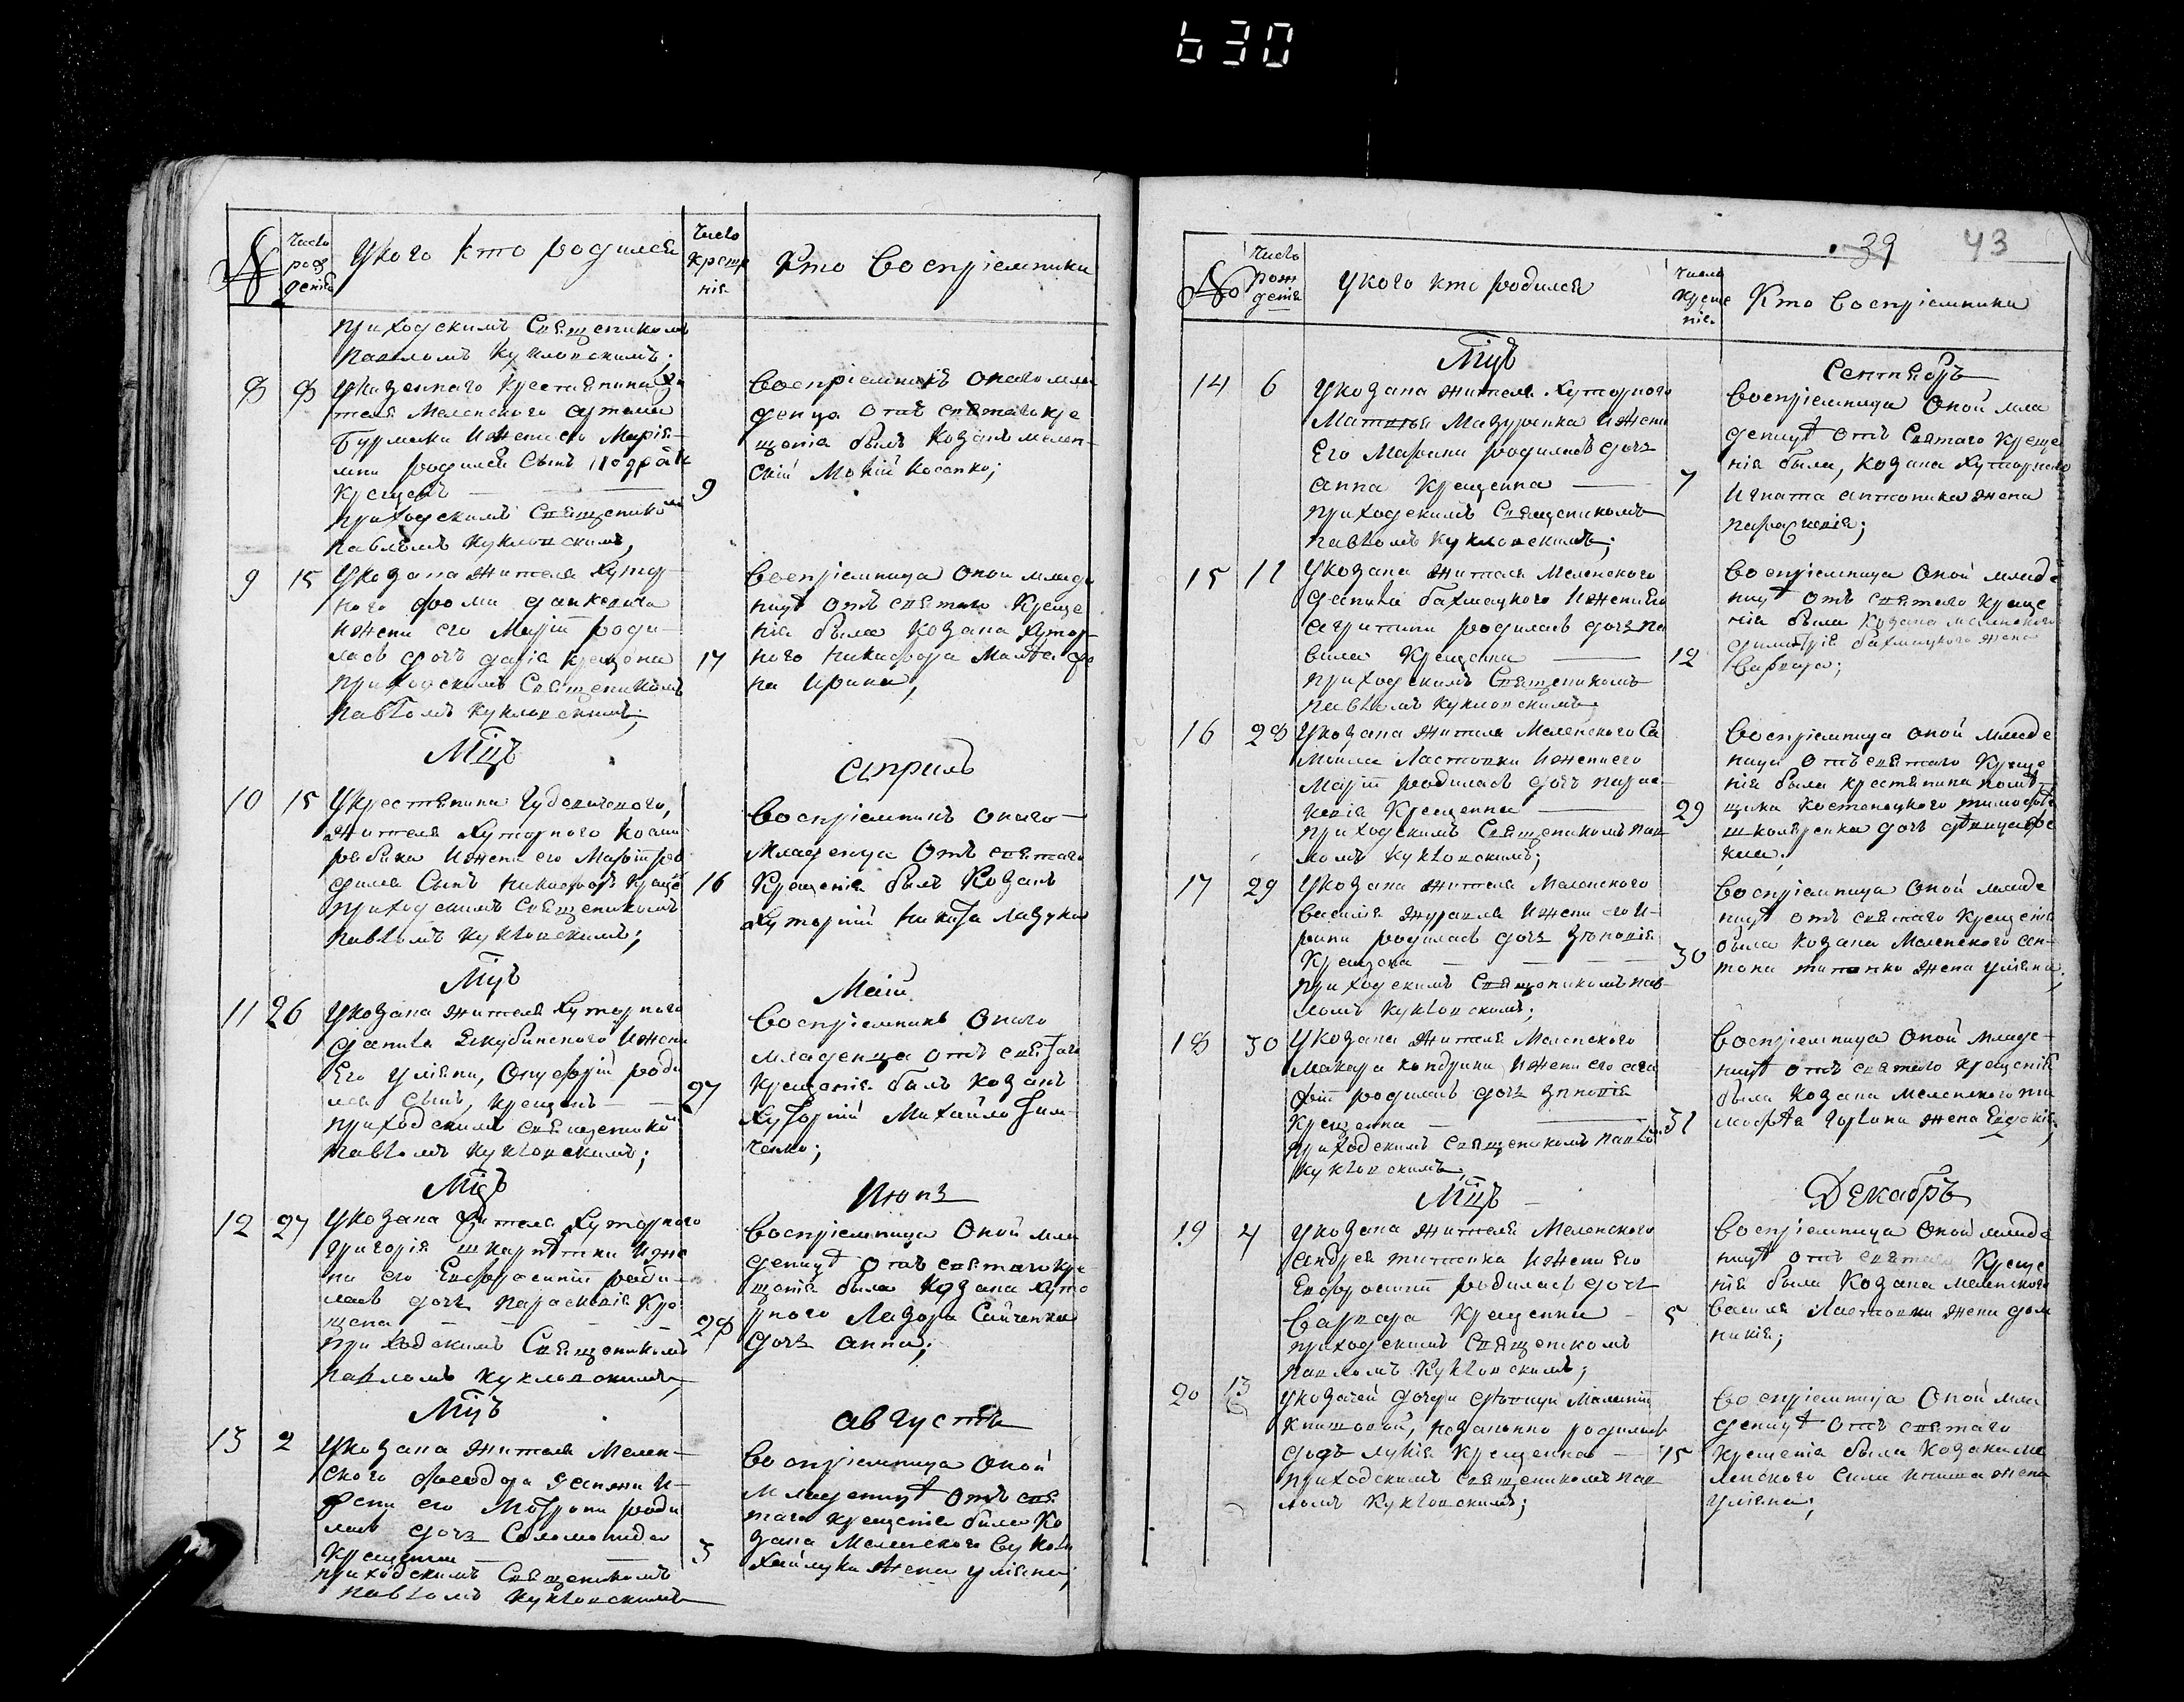 630
№
Число
рож
денія
Укого кто родился
Число
Крещ
нія
Кто воспріемники
приходскимъ Священикомъ
Павломъ Кукловскимъ;
8 8
Жителя Меленского
Бурмаки Ижени его Марія-
мни родился Сынъ
Крещенъ
9
приходскимъ Священико
Павломъ Кукловскимъ,
Воспріемникъ оного мла
денца отъ святаго кре
щенія былъ Козакъ мелен-
скій Мокій Косенко;
9 15
Укозака Жителя Хутор
ного Фомы
Ижени его Маріи роди-
лась дочъ Дарія Крещена
17
приходскимъ Священикомъ
Павломъ Кукловскимъ;
Воспріемница оной младе
ницѣ отъ святаго Креще
нія была Козака Хутор-
ного Никифора
на Ирина;
Мцъ
Априль
10 15
Укрестянина
Жителя Хуторного Косми
Ижени его Маріи ро
дился Сынъ Никифоръ Креще
16
приходскимъ Священикомъ
Павломъ Кукловскимъ;
Воспріемникъ оного
Младенца Отъ святаго
Крещенія былъ Козакъ
Хуторній Никита
Мцъ
Маій
11 26
Укозака Жителя Хуторного
Данила Ижени
Его Уліяни, Онуфрій роди
лся сынъ, крещенъ
27
приходскимъ священико
Павломъ Кукловскимъ;
Воспріемникъ Оного
младенца отъ святаго
Крещенія былъ Козакъ
Хуторній Михайло Тим-
ченко;
Мцъ
Июнъ
12 27
Укозака Жителя Хуторного
Григорія Ижє
ни его Евфросиніи роди-
лась дочъ Параскевія Кре
щена
28
приходскимъ Священикомъ
Павломъ Кукловскимъ
Воспріемница Оной мла
деницѣ отъ святаго кре
щенія была Козака Хуто
рного Лазора
дочъ Анна;
Мцъ
Августъ
13 2
Укозака Жителя Мелен-
ского Феодора И-
жени его Мотрони роди
лась дочъ Соломонида
Крещенна
3
приходскимъ Священикомъ
Павломъ Кукловскимъ
Воспріемница Оной
Младеницѣ отъ свя
таго крещенія была Ко
зака Меленского
жена Уліяна;
39 43
№
Число
рож
денія
Укого кто родился
Число
Креще
нія
Кто воспріемники
Мцъ
Сентябръ
14 6
Укозака жителя Хуторного
Матвѣя Мазуренка Ижени
Его Марини родилась дочъ
Анна Крещенна
7
приходскимъ Священикомъ
Павломъ Кукловскимъ;
Воспріемница Оной мла
деницѣ отъ Святаго Креще
нія была, Козака Хуторного
Игната Антоника жена
Параскевія;
15 11
Укозака Жителя Меленского
Данила Бахмацкого Ижени Его
Агрипини родилась дочъ Па
вила Крещенна
12
приходскимъ Священикомъ
Павломъ Кукловскимъ
Воспріемница Оной младе
ницѣ отъ святаго Креще
нія была Козака Меленского
Димитрія Бахмацкого жена
Варвара;
16 28
Укозака Жителя Меленского Са
мойла Ластовки Ижени его
Маріи родилась дочъ Парас-
кевія Крещенна
29
приходскимъ Священикомъ Пав
ломъ Кукловскимъ;
Воспріемница оной младе
ници Отъ святаго Креще
нія была крестянина помѣ-
щика Костенецкого Тимофея
дочъ дѣвица
17 29
Укозака жителя Меленского
Василія Журавля Ижени его И-
рини родилась дочъ Зѣновія
Крещена
30
приходскимъ Священикомъ Пав-
ломъ Кукловскимъ;
Воспріемница Оной младе
ницѣ отъ святаго Крещенія
была Козака Меленского Ан-
тона Титенка жена Уліяна;
18 30
Укозака Жителя Меленского
Макара Кондрики Ижени его Ага
фіи родилась дочъ Зиновія
Крещенна
31
приходскимъ Священикомъ Павло
Кукловскимъ
Воспріемница Оной младе-
ницѣ отъ святаго Крещенія
была Козака Меленского Ти
мофѣя жена Евдокія;
Мцъ
Декабръ
19 4
Укозака жителя Меленского
Андрея Титенка Ижени Его
Евфросиніи родилась дочъ
Варвара Крещенна
5
приходскимъ Священикомъ
Павломъ Кукловскимъ;
Воспріемница Оной младе
ницѣ отъ святаго Креще
нія была Козака Меленского
Василя Ластовки жена Дом
никія;
20 13
Укозачей дочери дѣвици Маланіи
незаконно родилась
дочъ Лукія Крещенна
15
приходскимъ Священикомъ Пав
ломъ Кукловскимъ;
Воспріемница Оной мла
деницѣ отъ святаго
Крещенія была Козака Ме
ленского Сили Книша жена
Уліяна;